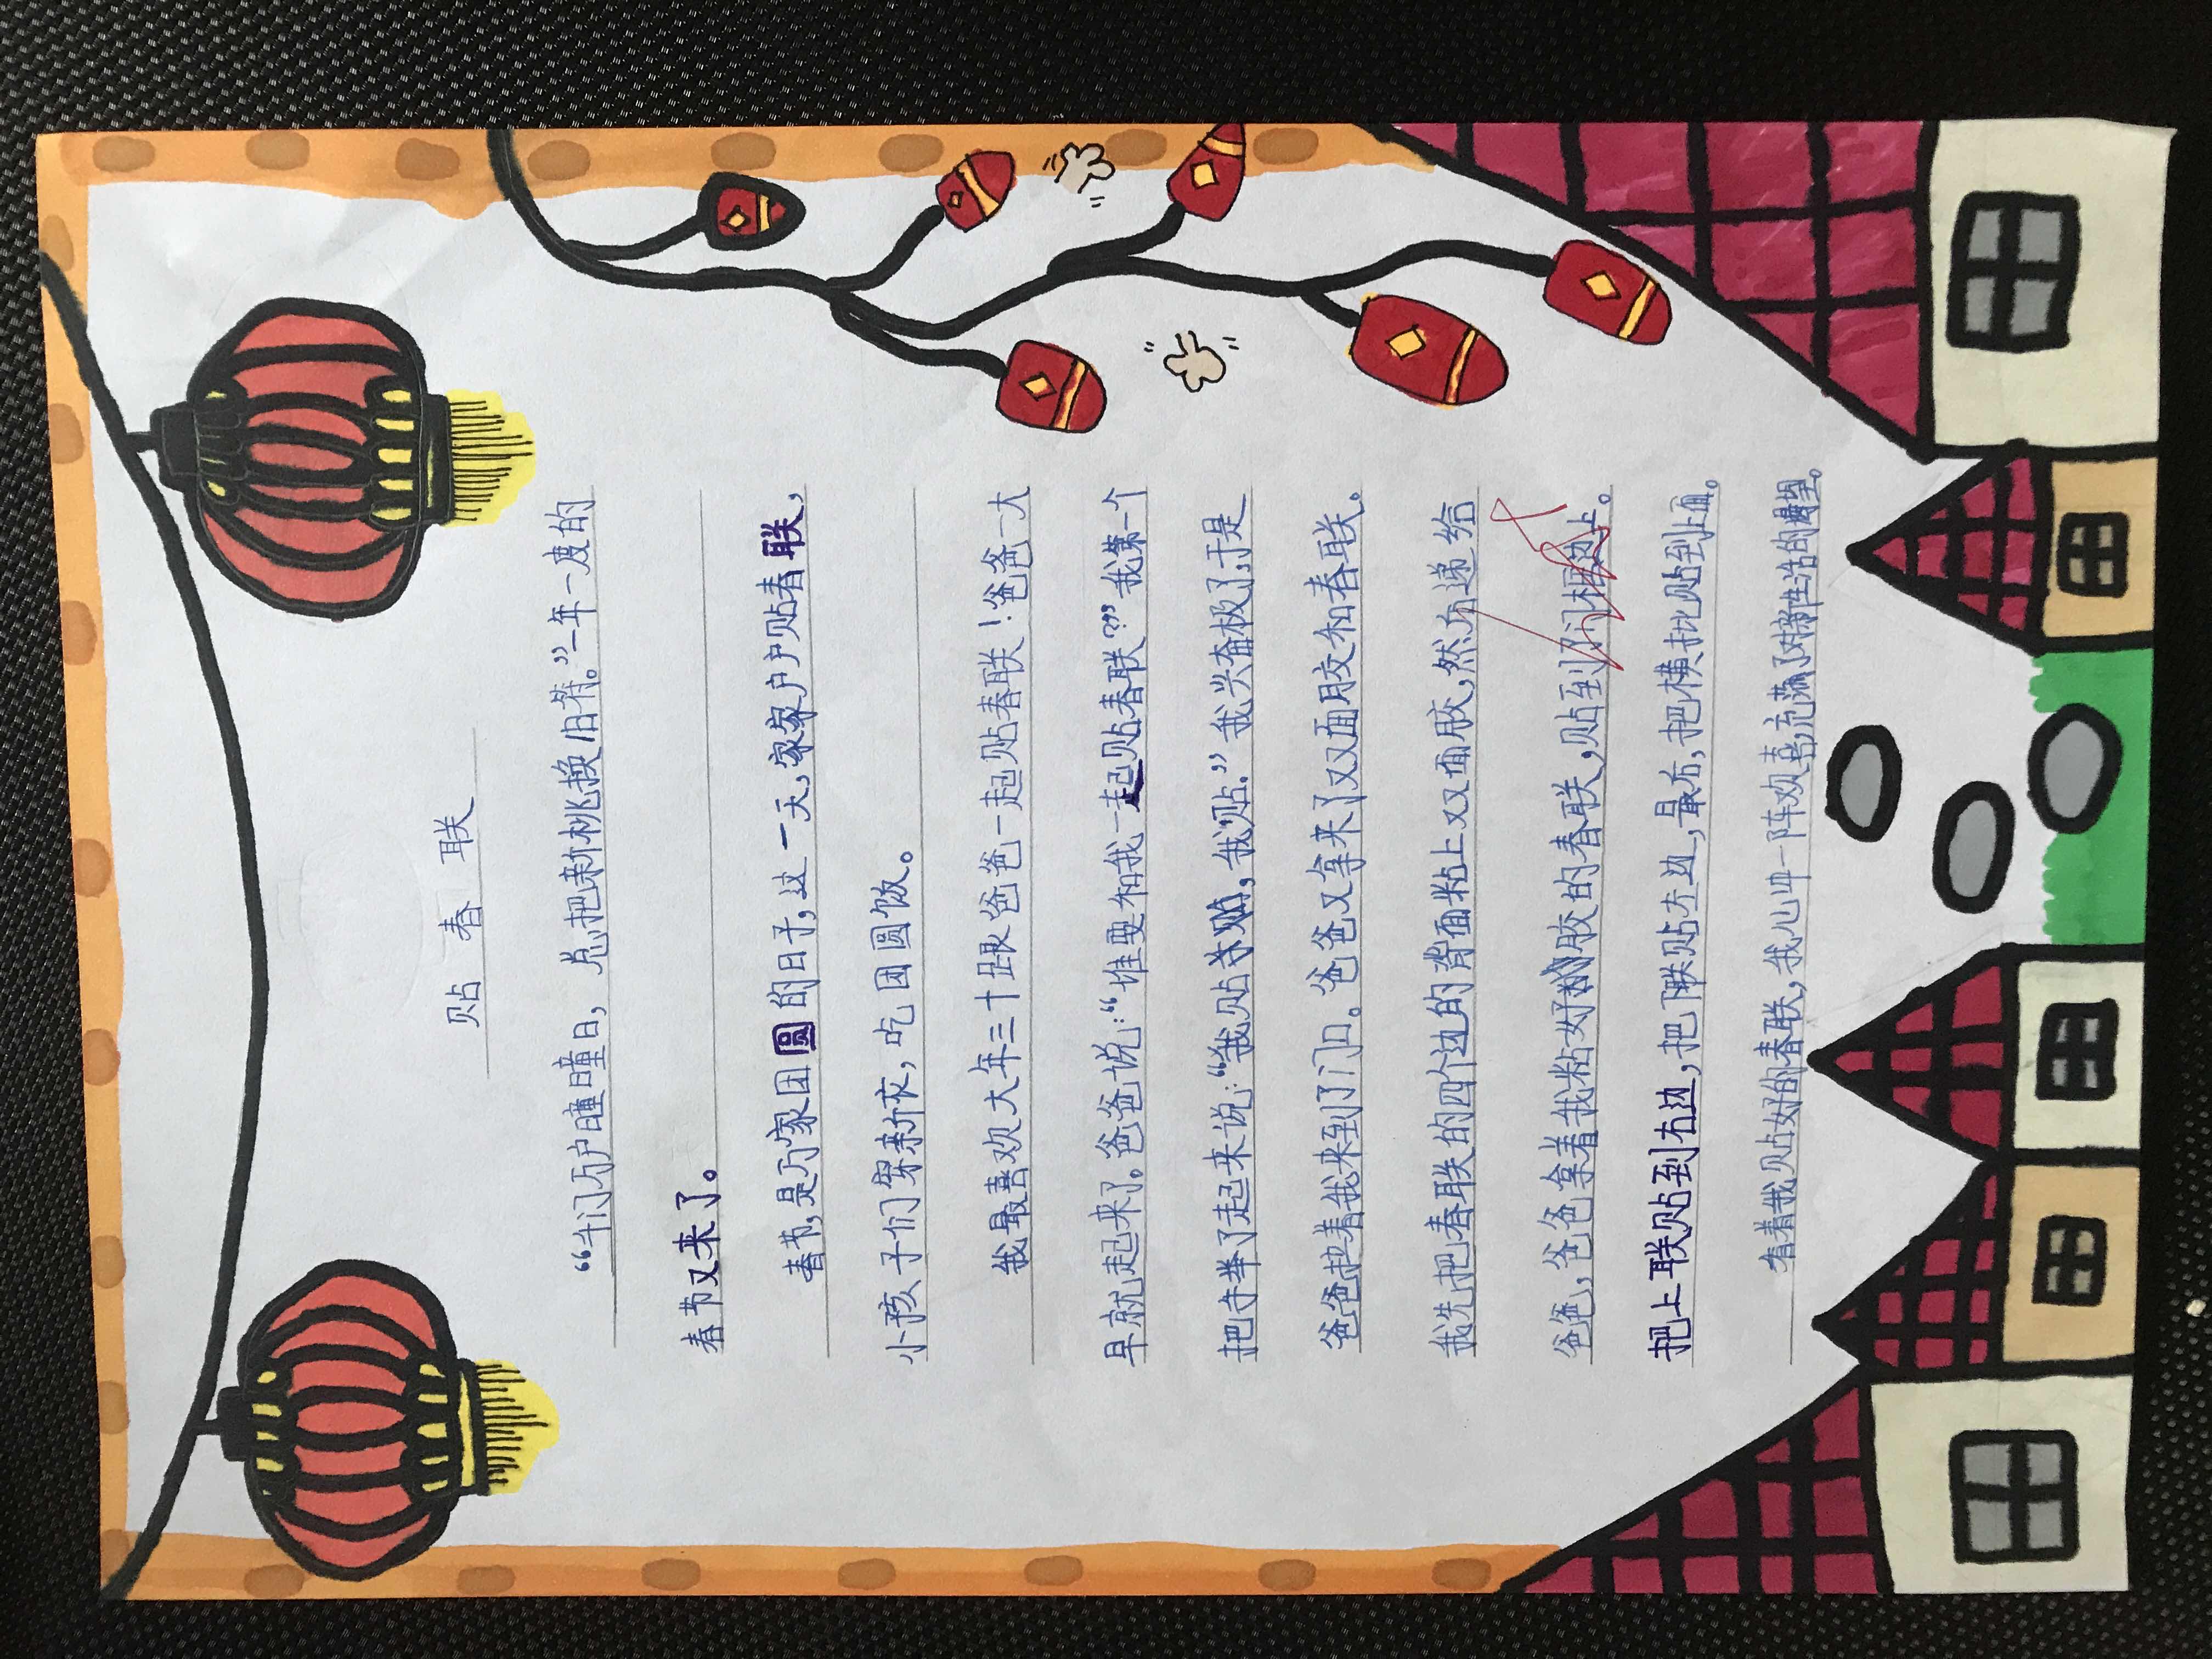 贴春联
“千门万户曈曈日，总把新桃换旧符。”一年一度的
春节又来了。
春节，是万家团圆的日子，这一天，家家户户贴春联，
小孩子们穿新衣，吃团圆饭。
我最喜欢大年三十跟爸爸一起贴春联！爸爸一大
早就起来了。爸爸说：“谁要和我一起贴春联？”我第一个
把手举了起来说：“我贴，我贴。”我兴奋极了，于是
爸爸拉着我来到了门口。爸爸又拿来了双面胶和春联。
我先把春联的四个边的背面粘上双面胶，然后递给
爸爸，爸爸拿着我粘好胶的春联，贴到门框边上。
把上联贴到右边，把下联贴左边，最后，把横批贴到上面。
看着我贴好的春联，我心中一阵欢喜，充满了对新生活的期望。